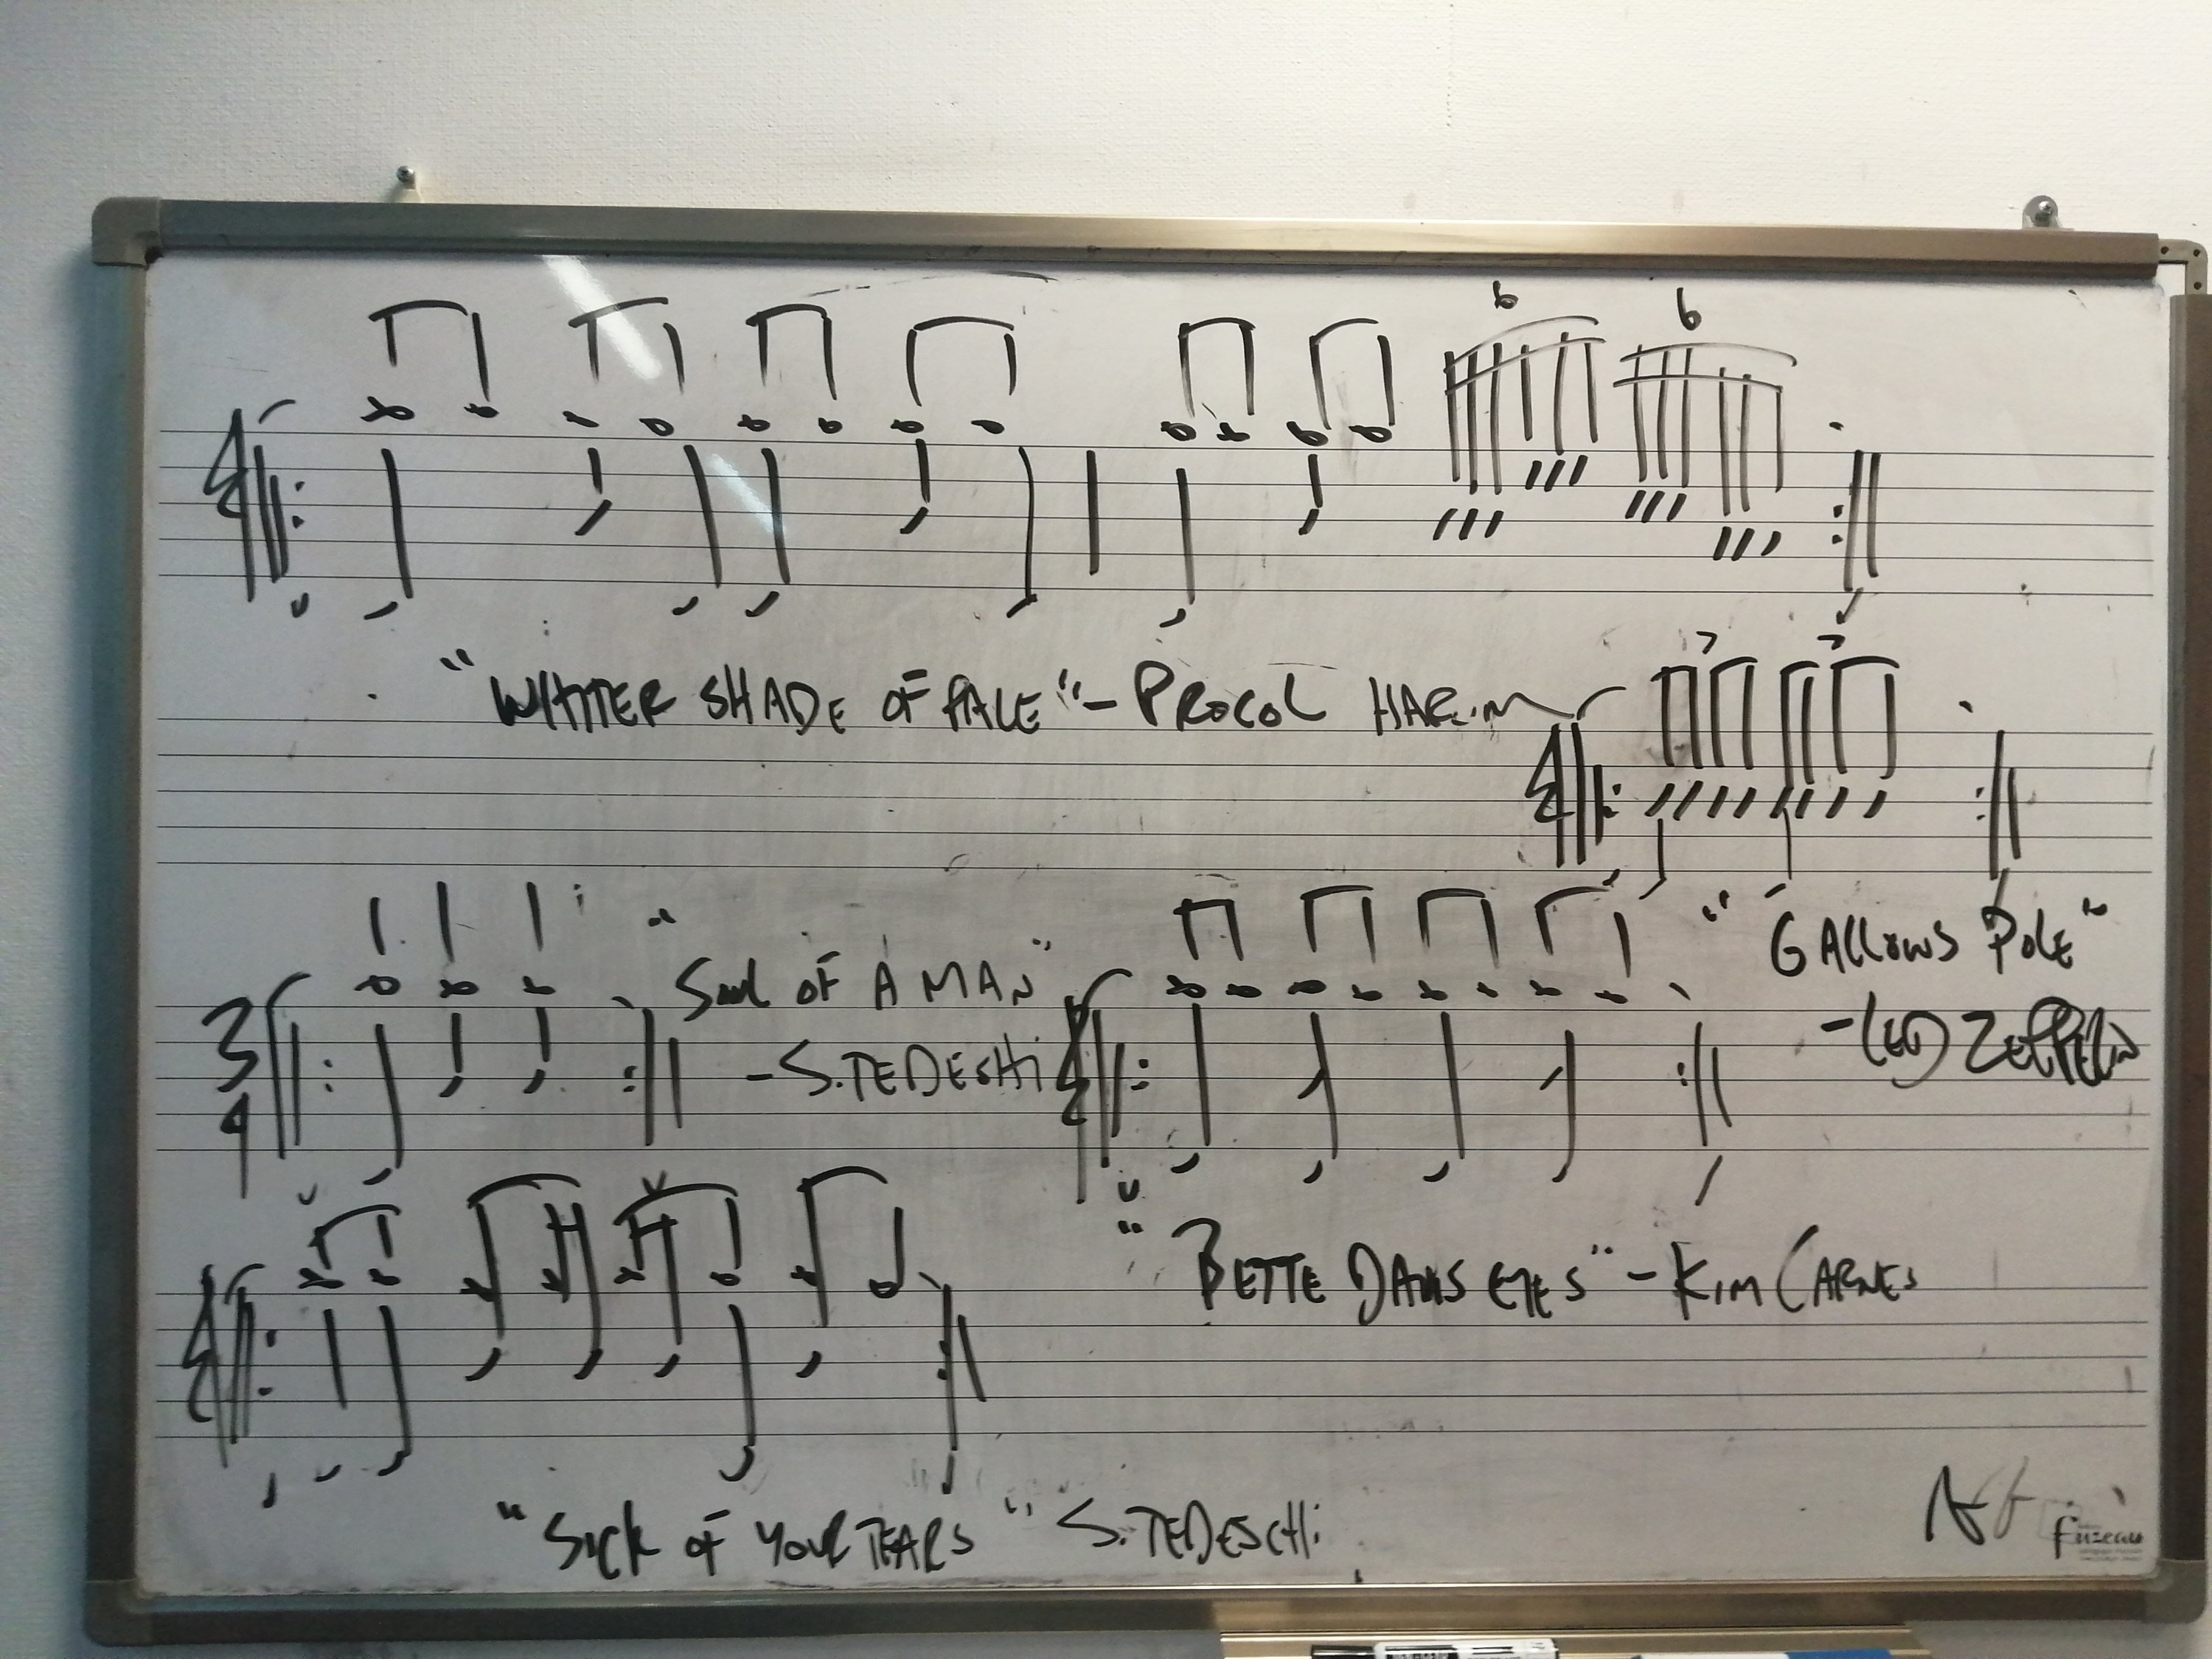 6 6
4
4
"WHITER SHADE OF PALE" - PROCOL HARUM
4
4
"GALLOWS POLE"
- LED ZEPPELIN
3
4
"Soul OF A MAN"
- S.TEDESCHi
4
4
"BETTE DAVIS EYES" - KIM CARNES
4
4
"SICK OF YOUR TEARS" S.TEDESCHi
fuzeau